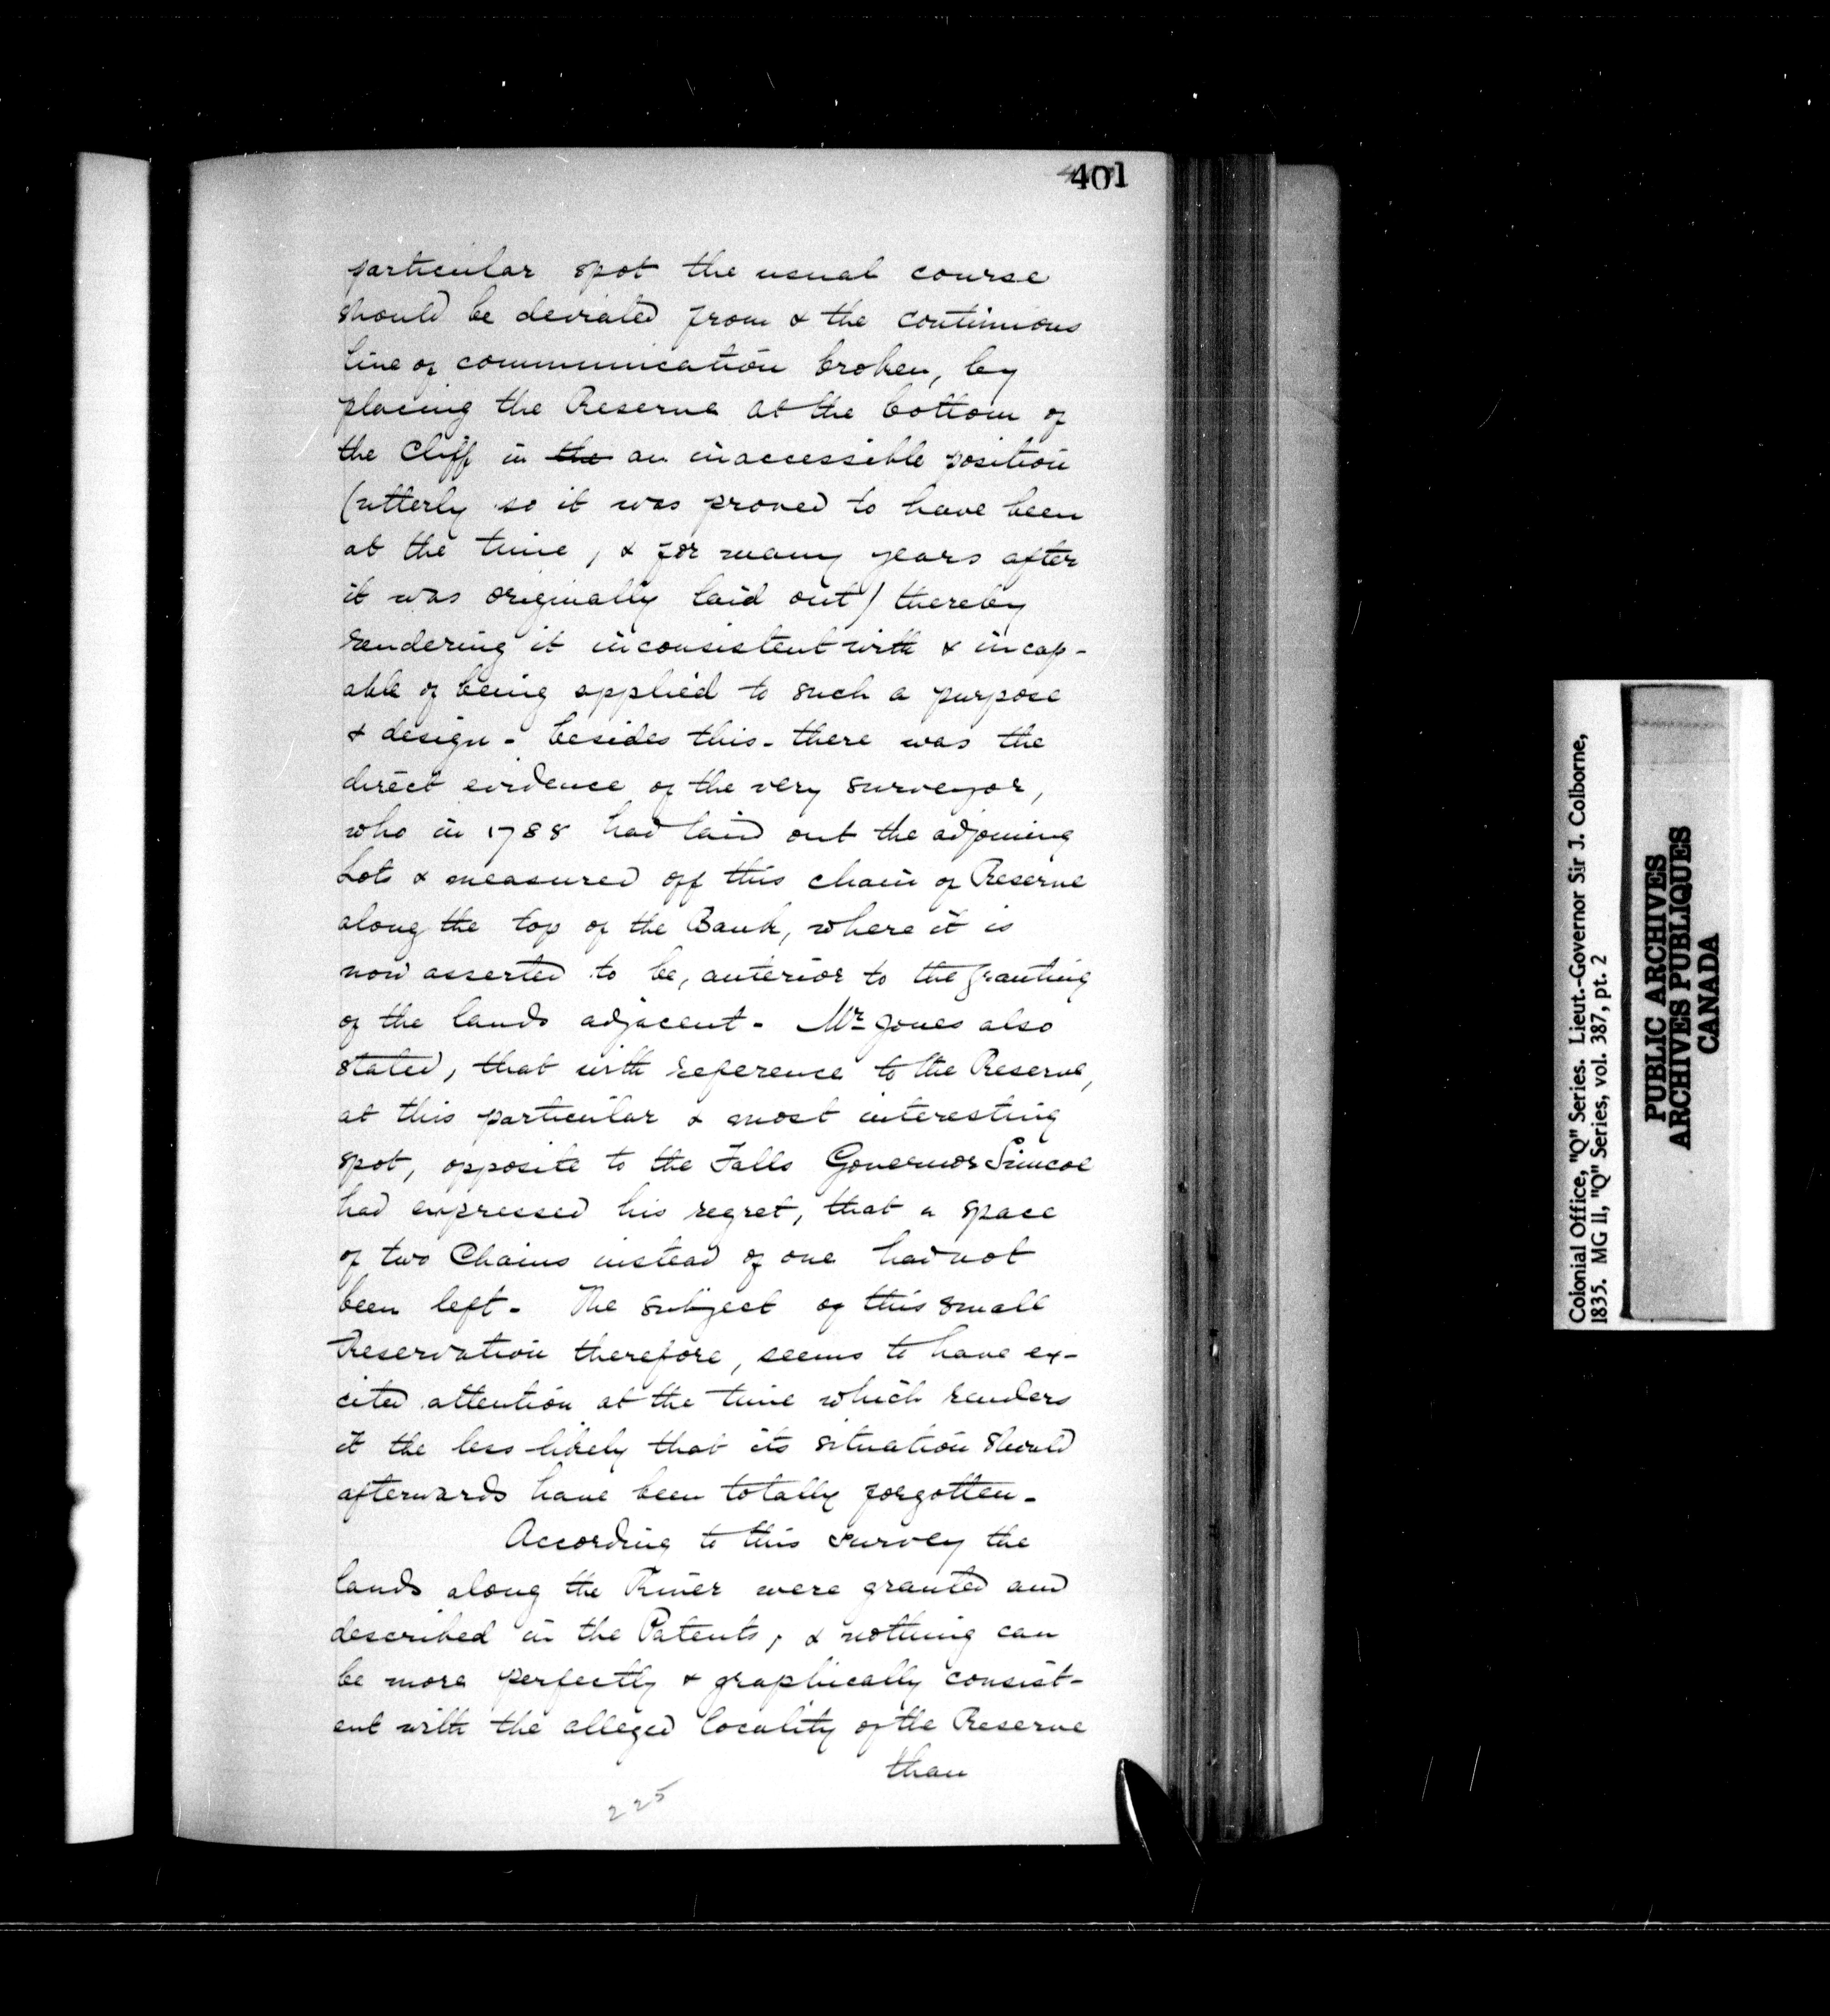 401
particular spot the usual course
should be deviated from & the continuous
line of communication broken, by
placing the Reserve at the bottom of
the Cliff in the an inaccessible position
(utterly so it was proved to have been
at the time, & for many years after
it was originally laid out) thereby
rendering it inconsistent with & incap-
able of being applied to such a purpose
& design - besides this - there was the
direct evidence of the very surveyor,
who in 1788 had laid out the adjoining
Lots & measured off this chain of Reserve
along the top of the Bank, where it is
now asserted to be, anterior to the granting
of the lands adjacent - Mr Jones also
stated, that with reference to the Reserve,
at this particular & most interesting
spot, opposite to the Falls Governor Simcoe
had expressed his regret, that a space
of two Chains instead of one had not
been left - The subject of this small
Reservation therefore, seems to have ex-
cited attention at the time which renders
it the less likely that its situation should
afterwards have been totally forgotten -
According to this survey the
lands along the River were granted and
described in the Patents, & nothing can
be more perfectly & graphically consist-
ent with the alleged locality of the Reserve
than
225
Colonial Office, "Q" Series. Lieut.-Governor Sir J. Colborne,
1835. MG 11, "Q" Series, vol. 387, pt. 2
PUBLIC ARCHIVES
ARCHIVES PUBLIQUES
CANADA